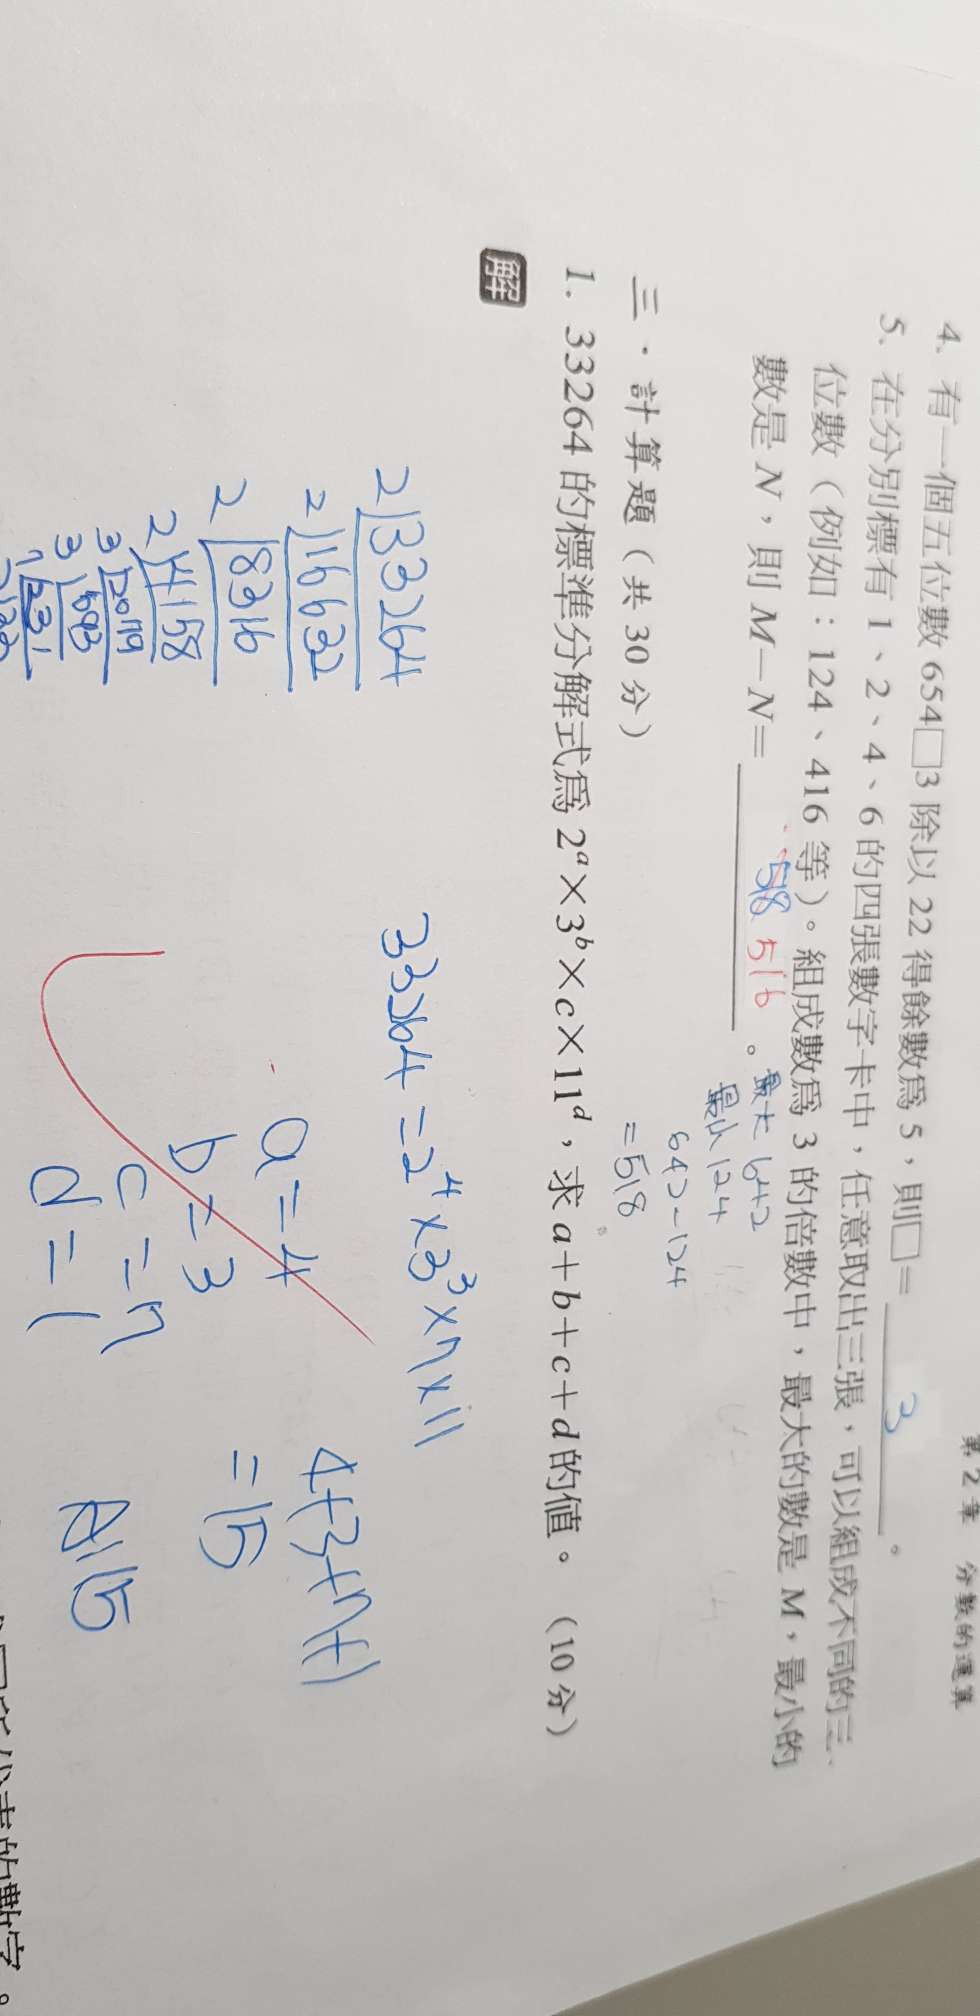 第2章 分數的運算
4. 有一個五位數 654□3 除以 22 得餘數為 5，則□= 3 。
5. 在分別標有 1、2、4、6 的四張數字卡中，任意取出三張，可以組成不同的三
位數（例如：124、416 等）。組成數為 3 的倍數中，最大的數是 M，最小的
數是 N，則 M－N= 518 516 。
最大 642
最小 124
642-124
=518
三．計算題（共 30 分）
1. 33264 的標準分解式為 2ᵃ×3ᵇ×c×11ᵈ，求 a＋b＋c＋d 的值。（10 分）
解
2 33264
2 16632
2 8316
2 4158
3 2079
3 693
231
33264 = 2⁴×3³×7×11
a=4
b=3
c=7
d=1
4+3+7+1
=15
A:15